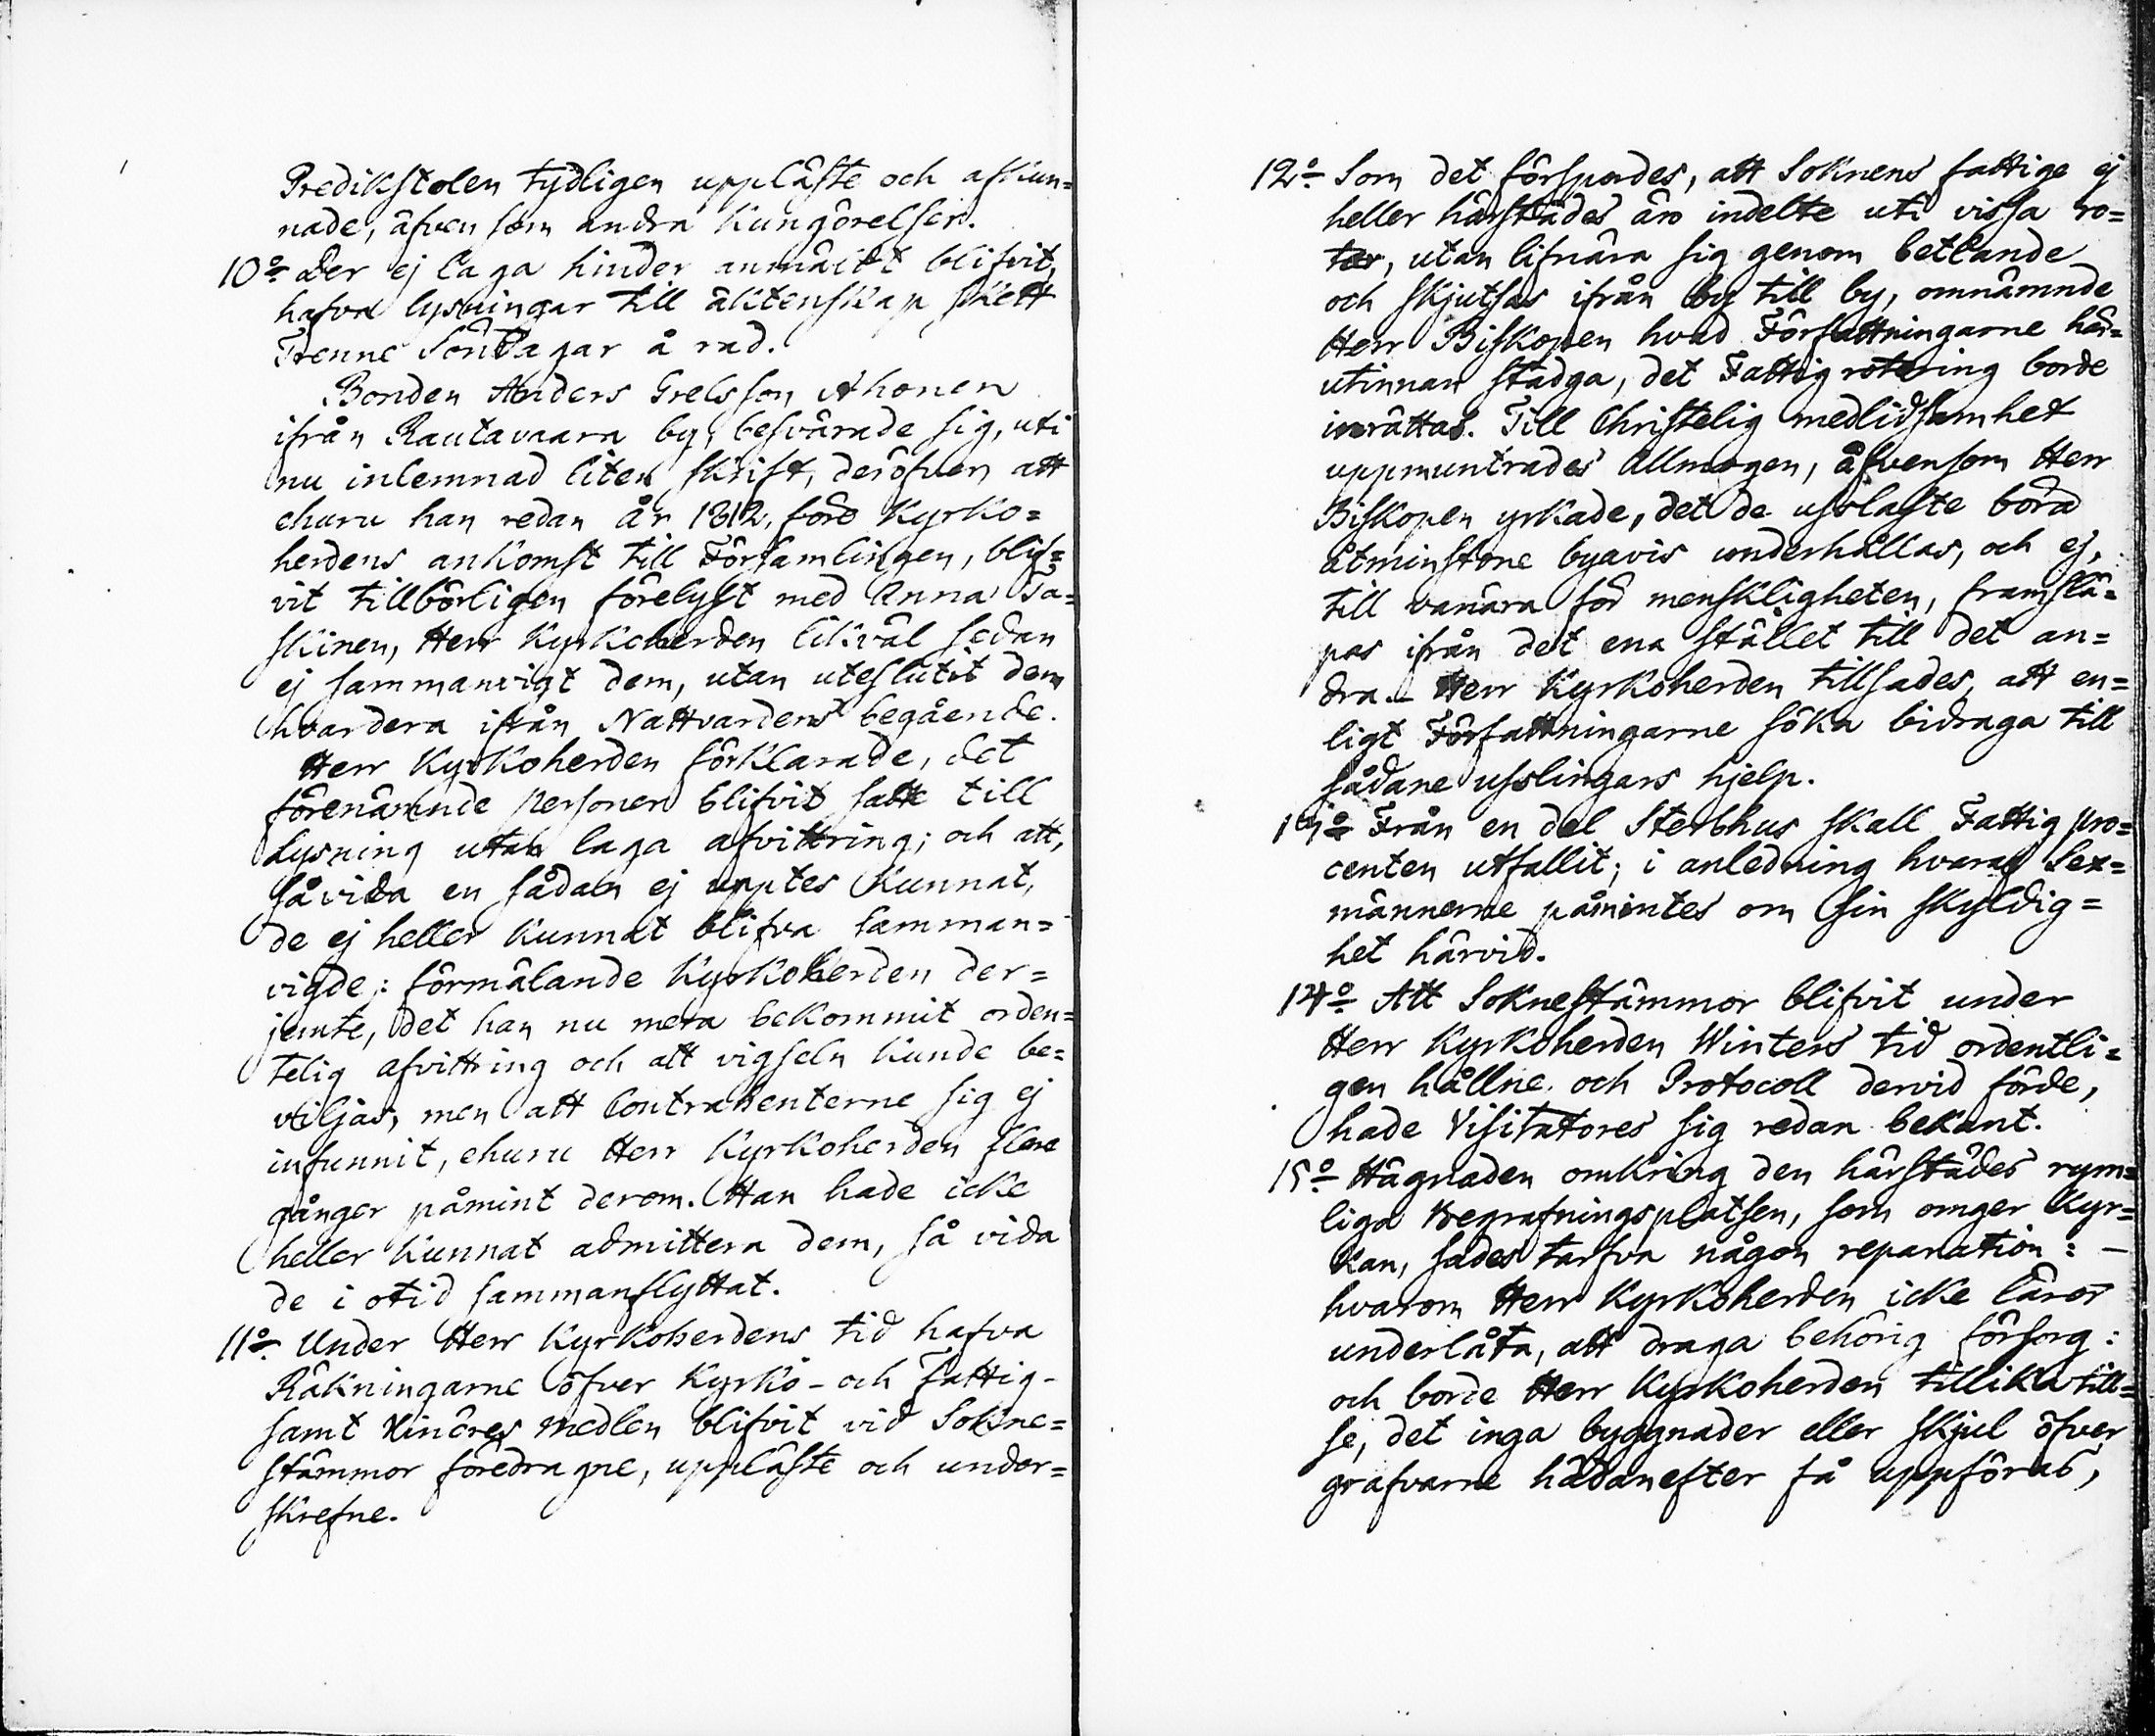 Predikstolen tydligen uppläste och afkun=
nade, äfven som andra Kungörelser.
10o Der ej laga hinder anmäldt blifvit,
hafva lysningar till äktenskap skett
Trenne Söndagar å rad.
Bonden Anders Grelsson Ahonen
ifrån Rautavaara by, besvärade sig, uti
nu inlemnad liten skrift, deröfver att
ehuru han redan år 1812, före Kyrko=
herdens ankomst till Församlingen, blif=
vit tillbörligen förelyst med Anna Ta=
skinen, Herr Kyrkoherden likväl sedan
ej sammanvigt dem, utan uteslutit dem
hvardera ifrån Nattvardens begående.
Herr Kyrkoherden förklarade, det
förenämnde personer blifvit satte till
Lysning utan laga afvittring; och att,
såvida en sådan ej upptes kunnat,
de ej heller kunnat blifva samman=
vigde: förmälande Kyrkoherden der=
jemte, det han nu mera bekommit orden=
telig afvittring och att vigseln kunde be=
viljas, men att Contrahenterne sig ej
infunnit, ehuru Herr Kyrkoherden flere
gånger påmint derom. Han hade icke
heller kunnat admittera dem, så vida
de i otid sammanflyttat.
11o Under Herr Kyrkoherdens tid hafva
Räkningarne öfver Kyrko- och Fattig-
samt medlen blifvit vid Sokne=
stämmor föredragne, uppläste och under=
skrefne.
12o Som det förspordes, att Soknens fattige ej
heller härstädes äro indelte uti vissa ro=
tar, utan lifnära sig genom betlande
och skjutsas ifrån by till by, omnämnde
Herr Biskopen hvad Författningarne här=
utinnan stadga, det Fattigrotering borde
inrättas. Till Christelig medlidsamhet
uppmuntrades Allmogen, äfvensom Herr
Biskopen yrkade, det de usslaste böra
åtminstone byavis underhållas, och ej,
till vanära för menskligheten, framslä=
pas ifrån det ena stället till det an=
dra. - Herr Kyrkoherden tillsades, att en=
ligt Författningarne söka bidraga till
sådane usslingars hjelp.
13o Från en del Sterbhus skall Fattig pro=
centen utfallit; i anledning hvaraf Sex=
männerne påmintes om sin skyldig=
het härvid.
14o Att Soknestämmor blifvit under
Herr Kyrkoherden Winters tid ordentli=
gen hållne och Protocoll dervid förde,
hade Visitatores sig redan bekant.
15o Hägnaden omkring den härstädes rym=
liga Begrafningsplatsen, som omger Kyr=
kan, sades tarfva någon reparation: -
hvarom Herr Kyrkoherden icke lärer
underlåta, att draga behörig försorg:
och borde Herr Kyrkoherden tillika till=
se, det inga byggnader eller skjul öfver
grafvarne hädanefter få uppföras,